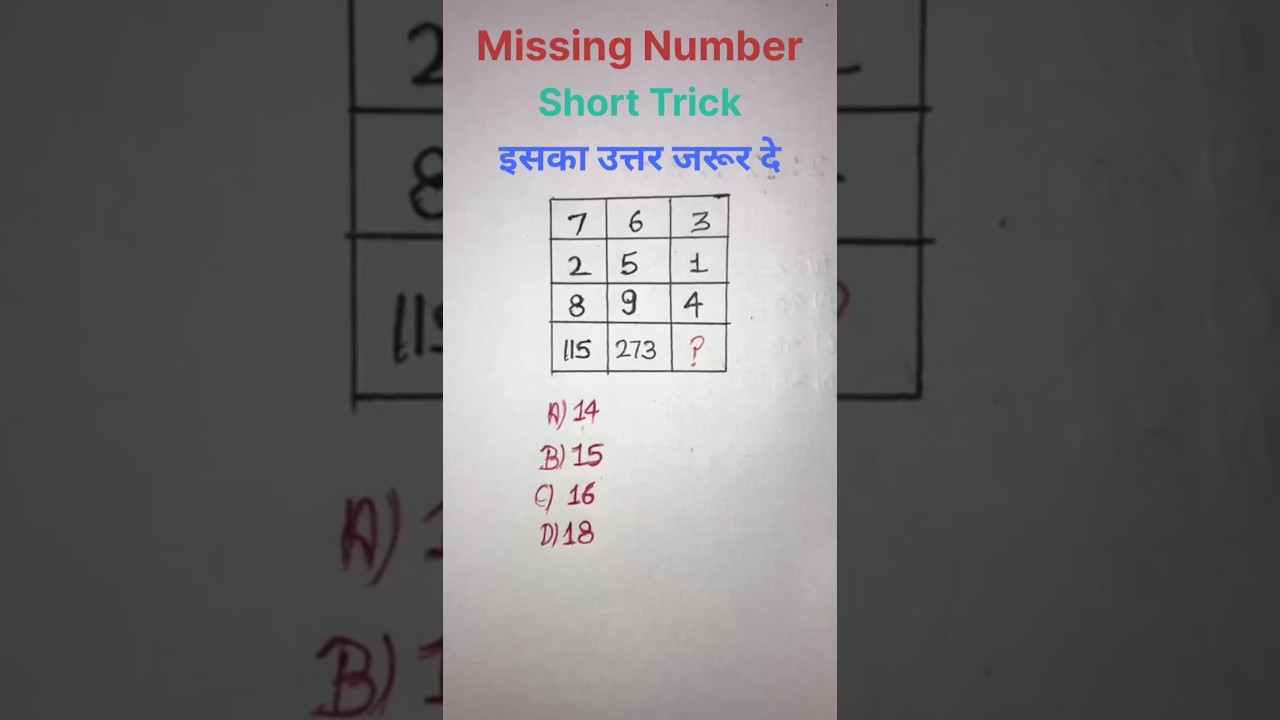 Missing Number
Short Trick
इसका उत्तर जरूर दे
7 6 3
2 5 1
8 9 4
115 273 ?
A) 14
B) 15
C) 16
D) 18